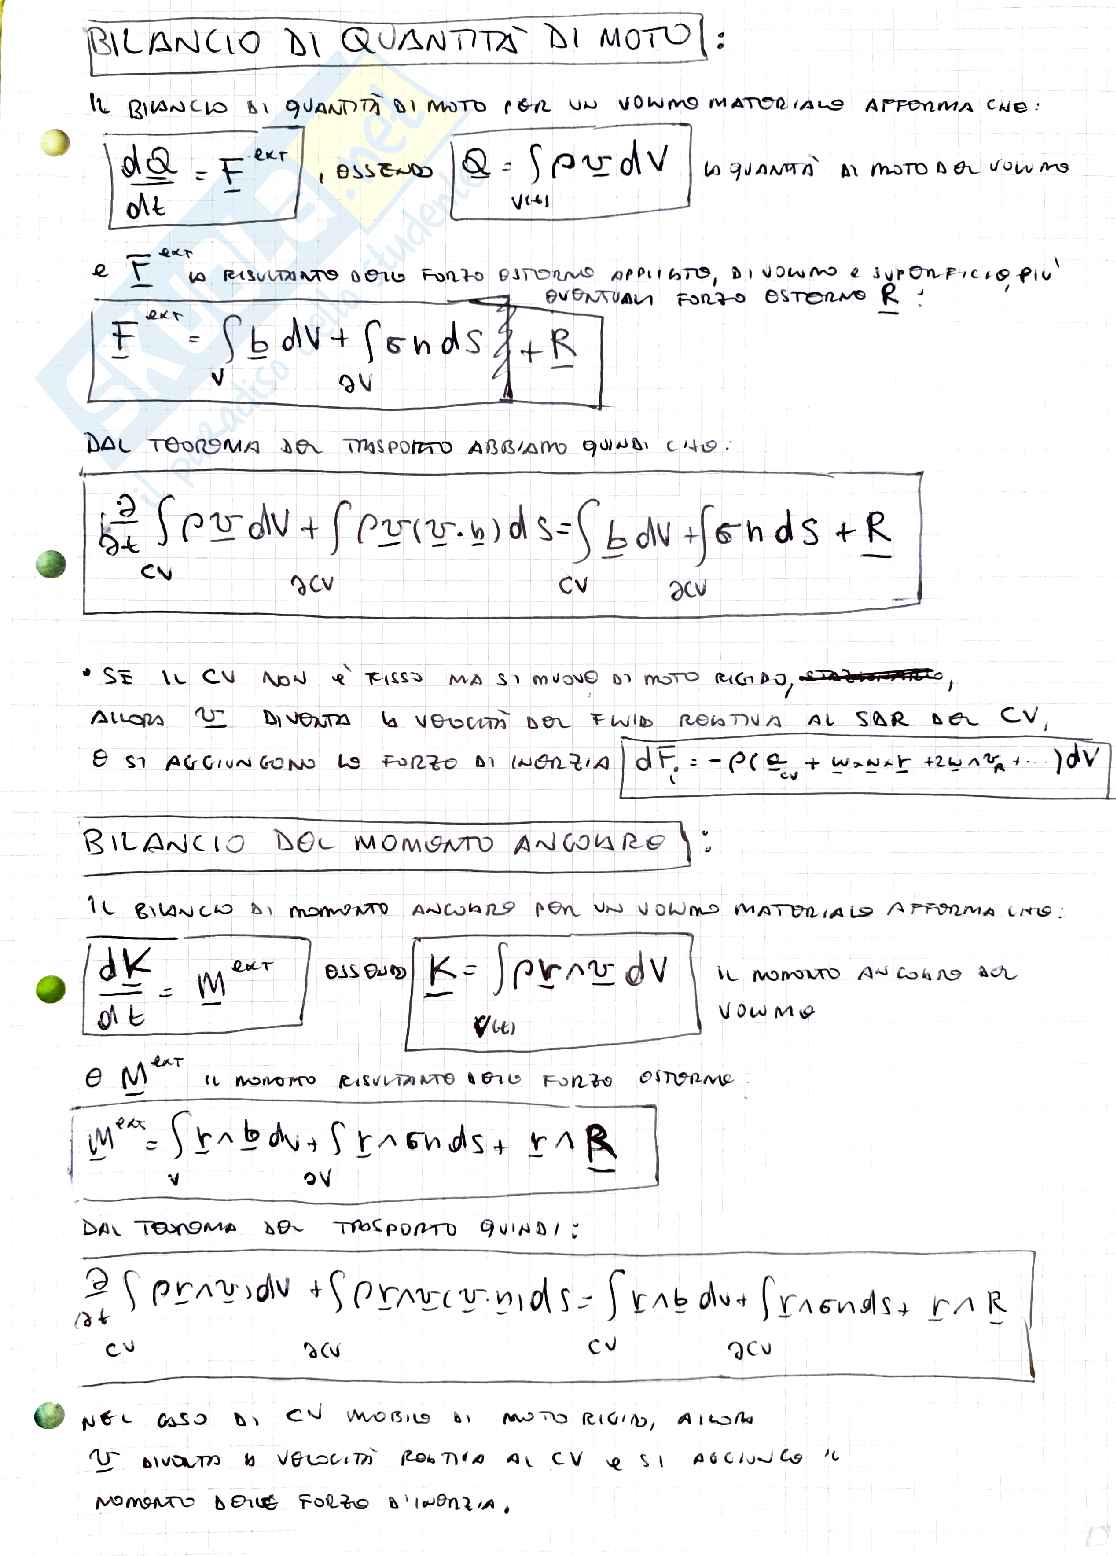 BILANCIO DI QUANTITÀ DI MOTO:
IL BILANCIO DI QUANTITÀ DI MOTO PER UN VOLUME MATERIALE AFFERMA CHE:
dQ/dt = F^ext, ESSENDO Q = ∫_V(t) ρ v dV LA QUANTITÀ DI MOTO DEL VOLUME
E F^ext LA RISULTANTE DELLE FORZE ESTERNE APPLICATE, DI VOLUME E SUPERFICIE, PIU'
EVENTUALI FORZE ESTERNE R:
F^ext = ∫_V b dV + ∫_∂V σ n dS + R
DAL TEOREMA DEL TRASPORTO ABBIAMO QUINDI CHE:
∂/∂t ∫_CV ρ v dV + ∫_∂CV ρ v (v · n) dS = ∫_CV b dV + ∫_∂CV σ n dS + R
• SE IL CV NON È FISSO MA SI MUOVE DI MOTO RIGIDO,
ALLORA v DIVENTA LA VELOCITÀ DEL FLUIDO RELATIVA AL SDR DEL CV,
E SI AGGIUNGONO LE FORZE DI INERZIA dF_i = -ρ(a_CV + w∧w∧r + 2w∧v_R + ...)dV
BILANCIO DEL MOMENTO ANGOLARE:
IL BILANCIO DI MOMENTO ANGOLARE PER UN VOLUME MATERIALE AFFERMA CHE:
dK/dt = M^ext ESSENDO K = ∫_V(t) ρ r ∧ v dV IL MOMENTO ANGOLARE DEL
VOLUME
E M^ext IL MOMENTO RISULTANTE DELLE FORZE ESTERNE
M^ext = ∫_V r ∧ b dV + ∫_∂V r ∧ σ n dS + r ∧ R
DAL TEOREMA DEL TRASPORTO QUINDI:
∂/∂t ∫_CV ρ r ∧ v dV + ∫_∂CV ρ r ∧ v (v · n) dS = ∫_CV r ∧ b dV + ∫_∂CV r ∧ σ n dS + r ∧ R
NEL CASO DI CV MOBILE DI MOTO RIGIDO, ALLORA
v DIVENTA LA VELOCITÀ RELATIVA AL CV E SI AGGIUNGE IL
MOMENTO DELLE FORZE D'INERZIA.
SKUOLA.net
il paradiso dello studente